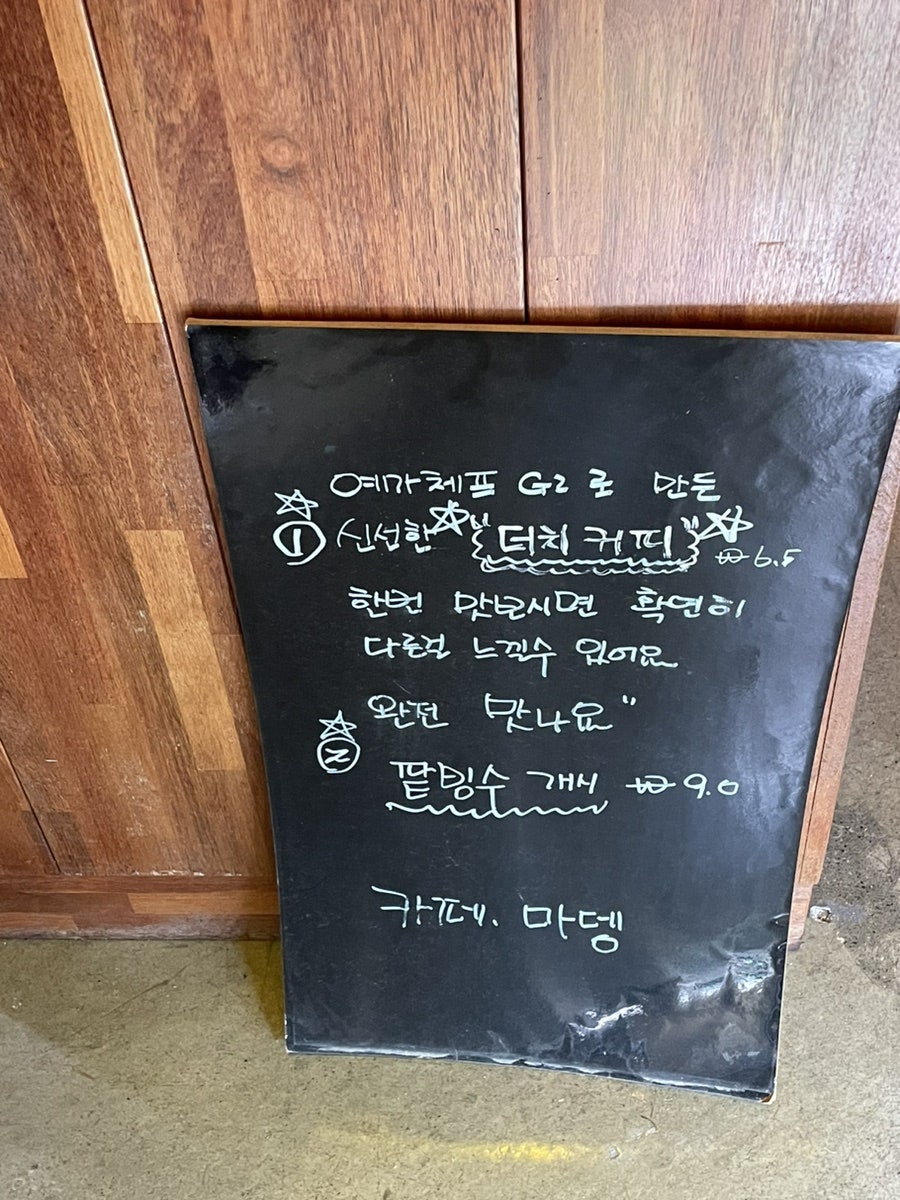 예가체프 G2로 만든
① 신선한 "더치 커피" ₩6.5
한번 맛보시면 확연히
다른걸 느낄수 있어요
완전 맛나요"
② 팥빙수 개시 ₩9.0
카페. 마뎅